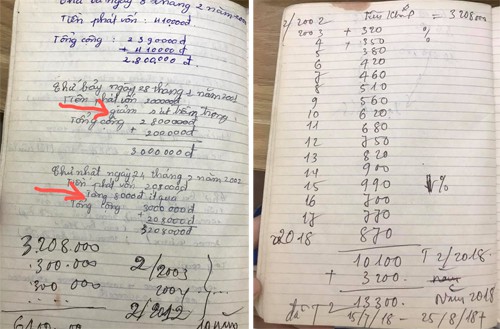 Tiền phát vốn : 410000đ
Tổng cộng : 2390000đ
+ 410000đ
2.800000đ
Thứ bảy ngày 28 tháng 2 năm 2002
Tiền phát vốn 200000đ
giảm sút trầm trọng
Tổng cộng 2800000đ
+ 200000đ
3000000đ
Thứ nhất ngày 21 tháng 2 năm 2002
Tiền phát vốn 208000đ
Tăng 8000đ ít quá
Tổng cộng 3000000đ
+ 208000đ
3208000đ
3.208.000
300.000 2/2003
300 000 2004
2/2012
2/2002 = 3208000
2003 + 320 %
4 + 350
5 380
6 420
7 460
8 510
9 560
10 620
11 680
12 750
13 820
14 900
15 990 %
16 700
17 770
2018 870
10 100 T 2/2018
+ 3200
T2 13300. Năm 2018
15/7/18 - 25/8/18